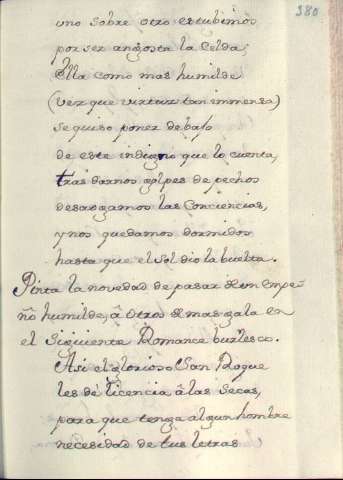 380
uno sobre otro estubimos
por ser angosta la Celda;
Ella como mas humilde
(vez que virtuz tan immensa)
se quiso ponez debajo
de este indigno que lo cuenta,
tras darnos golpes de pechos
desaogamos las Conciencias,
y nos quedamos dormidos
hasta que el Sol dio la buelta.
Pinta la novedad de pasar de un empe-
ño humilde, â otro de mas gala en
el Siguiente Romance burlesco.
Asi el glorioso San Roque
les dé licencia â las Secas,
para que tenga algun hombre
necesidad de tus letras